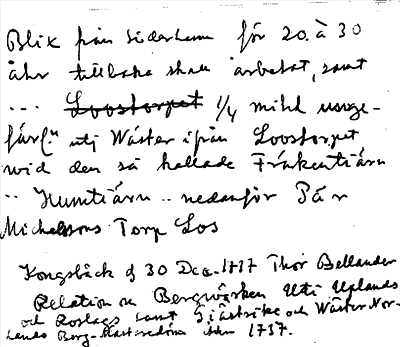 Blix från Söderhamn för 20. à 30
åhr tillbaka skall arbetat, samt
... Loostorpet 1/4 mihl unge-
färl. utj Wäster ifrån Loostorpet
wid den så kallade Fräkentiärn
.. Humtiärn .. nedanför Pär
Michelssons Torp Los
Kongsbäck d 30 Dec. 1737 Thor Bellander
Relation om Bergwärken Uti Uplands
och Roslags samt Giästrike och Wäster Nor-
lands Berg-Mästaredöm 1737.